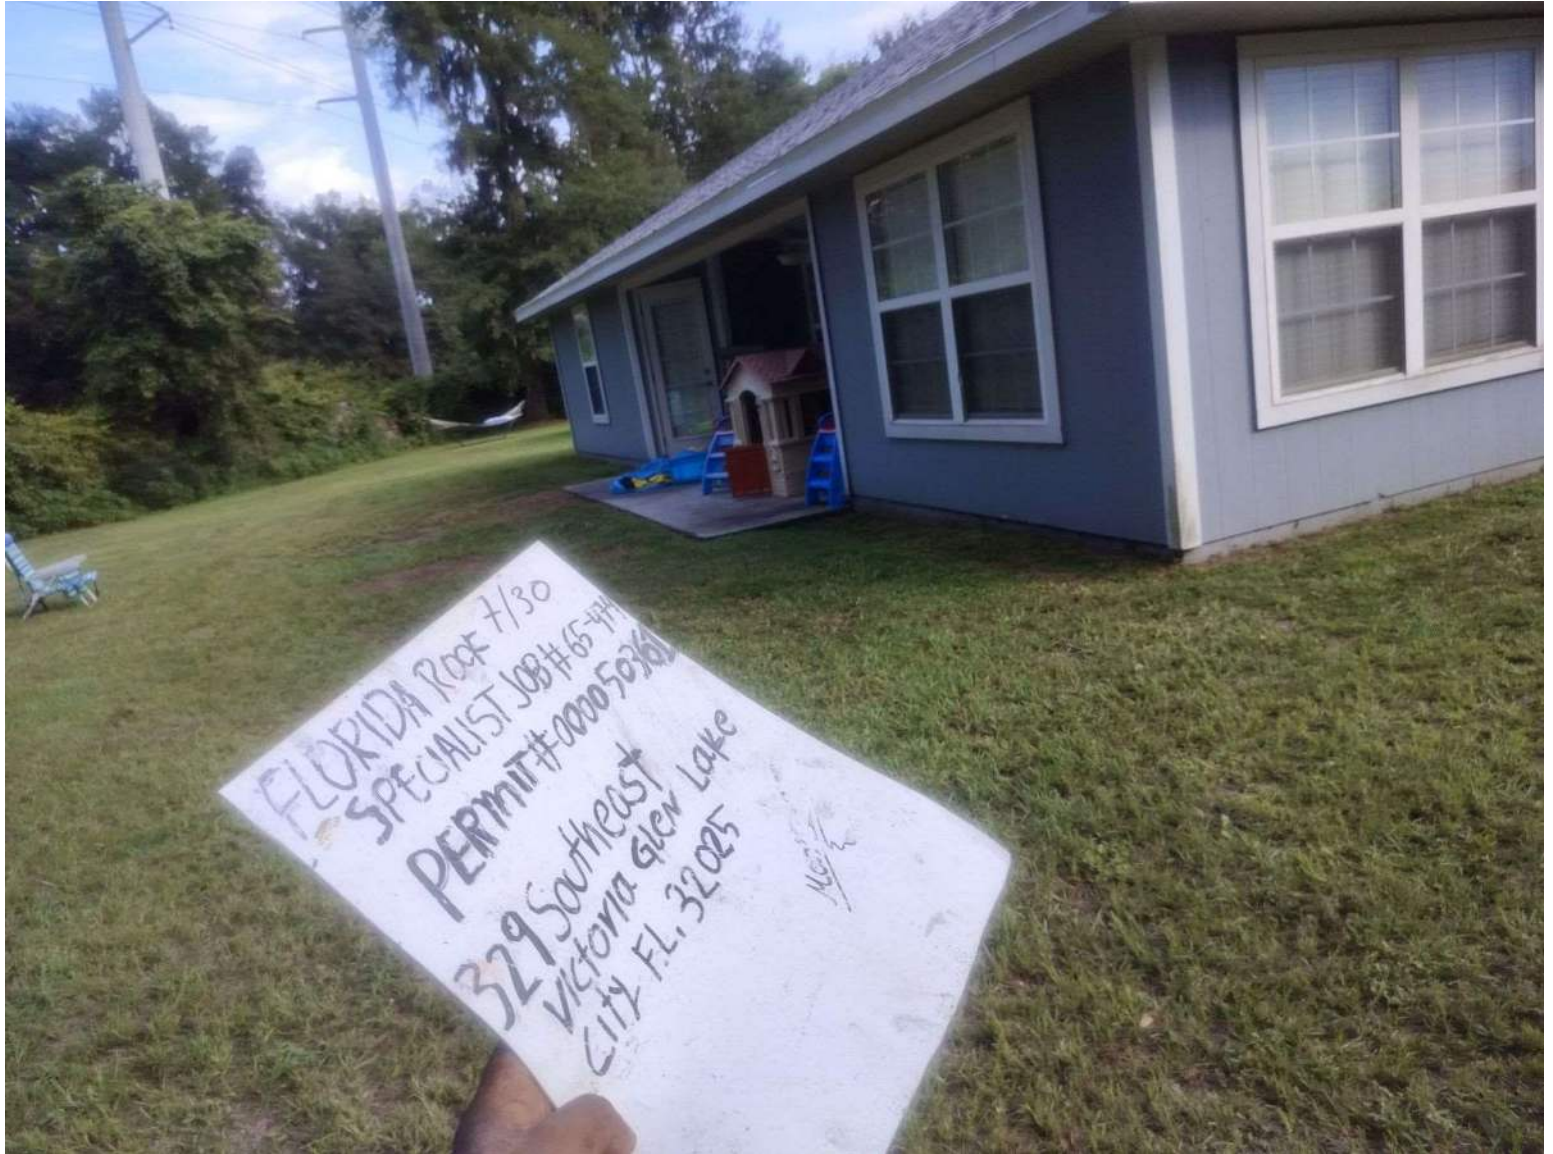 FLORIDA ROOF 7/30
SPECIALIST JOB#
PERMIT#
329 Southeast
Victoria Glen Lake
City FL. 32025